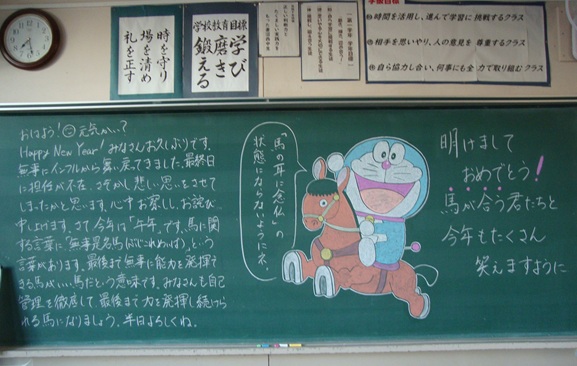 時を守り
場を清め
礼を正す
学校教育目標
学び
磨き
鍛える
学級目標
時間を活用し、進んで学習に挑戦するクラス
相手を思いやり、人の意見を尊重するクラス
自ら協力し合い、何事にも全力で取り組むクラス
おはよう!元気かい?
Happy New Year! みなさんお久しぶりです。
無事にインフルから舞い戻ってきました。最終日
に担任が不在、さぞかし悲しい思いをさせて
しまったかと思います。心中お察し、お詫び
申し上げます。さて、今年は「午年」です。馬に関
する言葉に「無事是名馬(ぶじこれめいば)」という
言葉があります。最後まで無事に能力を発揮で
きる馬がいい馬だという意味です。みなさんも自己
管理を徹底して、最後まで力を発揮し続けら
れる馬になりましょう。本日よろしくね。
「馬の耳に念仏」の
状態にならないようにネ。
明けまして
おめでとう!
馬が合う君たちと
今年もたくさん
笑えますように